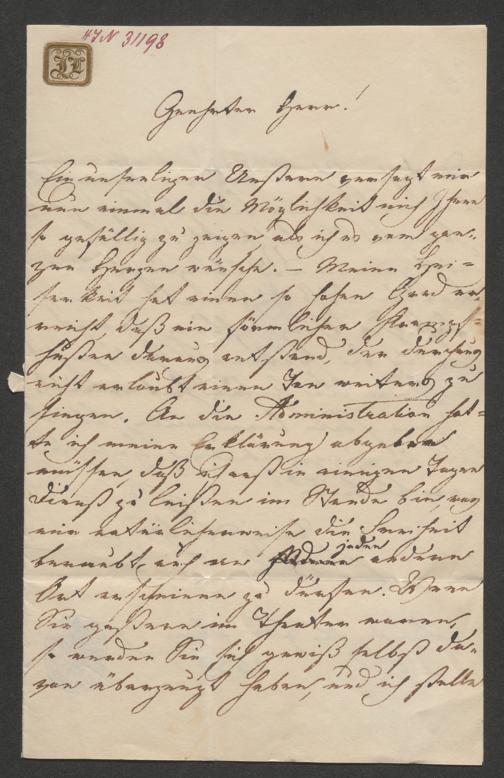 HJN 31198
JL
Geehrter Herr!
Ein unseeliger Unstern versagt mir
nun einmal die Möglichkeit mich Ihnen
so gefällig zu zeigen als ich es vom gan-
zen Herzen wünsche. – Meine Hei-
serkeit hat einen so hohen Grad er-
reicht, daß ein förmlicher
Husten daraus entstand, der durchaus
nicht erlaubt einen Ton weiters zu
singen. An die Administration hat-
te ich meine Erklärung abgeben
müssen, daß ich erst in einigen Tagen
Dienst zu leisten im Stande bin, was
mir natürlicherweise die Freiheit
beraubt, auch an jeden andern
Ort erscheinen zu dürfen. Wenn
Sie gestern im Theater waren,
so werden Sie sich gewiß selbst da-
von überzeugt haben, und ich stelle